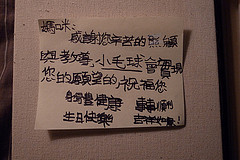 媽咪：
感謝您辛苦的照顧
與教導，小毛球會實現
您的願望的祝福您
身體健康
生日快樂
吉祥如意